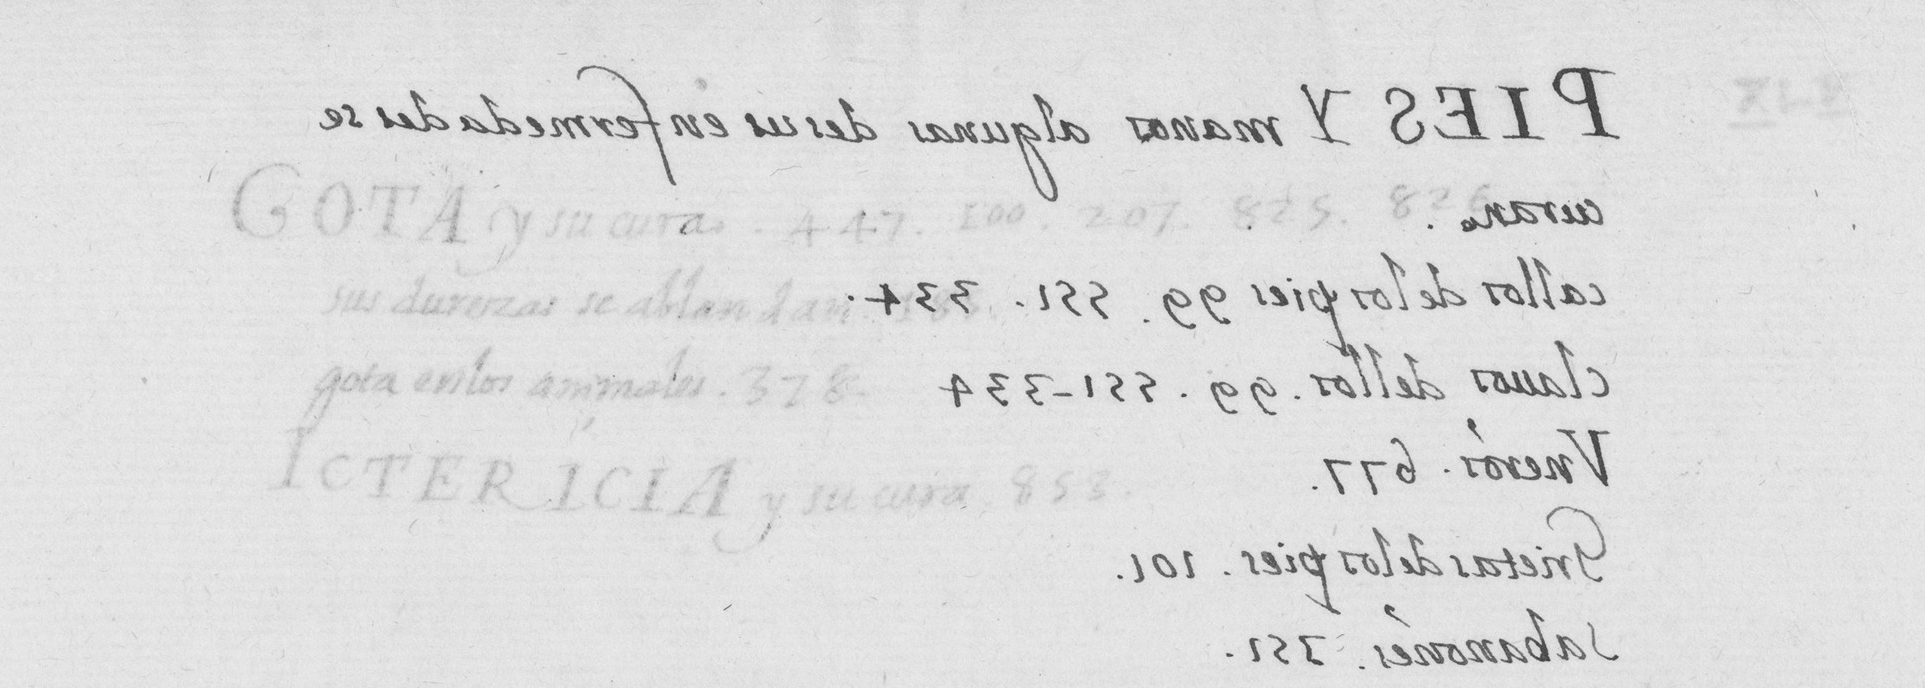 PIES Y manos algunas desus enfermedades se
curan.
callos delos pies 99. 551. 334.
clauos dellos. 99. 551-334
Vneros. 677.
Grietas delos pies. 101.
sabanones. 351.
GOTA y su cura. 447. 100. 207. 825. 826
sus durezas se ablandan.
gota enlos animales. 378.
ICTERICIA y su cura. 853.